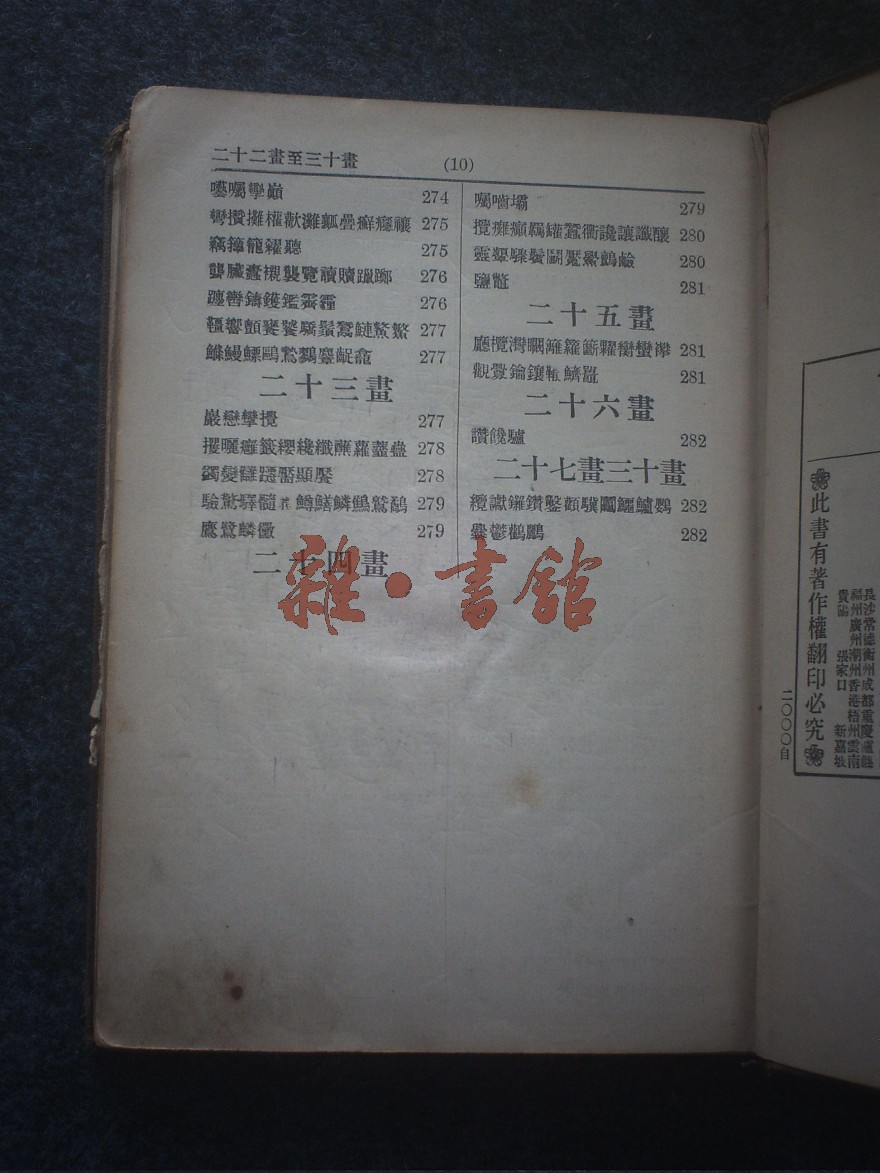 二十二畫至三十畫
(10)
囈囑孿巔 274
彎攢攤權歡灘瓤疊癬癮禳 275
竊籠糴聽 275
聾臟襯襲覽讀贖躐躑 276
轡鑄鑊鑑霽霾 276
韁響顫饕驕鬚鰱鰲鱉 277
鰻鰾鷗鷙鷚龕 277
二十三畫
巖戀攣攪 277
曬籤纓纔纖蘸蘿蠱 278
變讎靨顯 278
驗驚驛髓 鱒鱔鱗鷲鷸 279
鷹鷺麟黴 279
二十四畫
囑壩 279
攬癱癲羈罐蠶衢讒讓讖釀 280
靈驟鬢鹼 280
鹽鼈 281
二十五畫
廳欖灣籬籮糶蠻 281
觀釁鑰鑲 281
二十六畫
讚饞驢 282
二十七畫三十畫
纜讞鑼鑽鑿顴驥鱷鱸鸚 282
爨鬱鸛鸝 282
雜·書館
此書有著作權翻印必究
長沙常德衡州成都重慶瀘縣
福州廣州潮州香港梧州雲南
貴陽 張家口 新嘉坡
二〇〇〇自